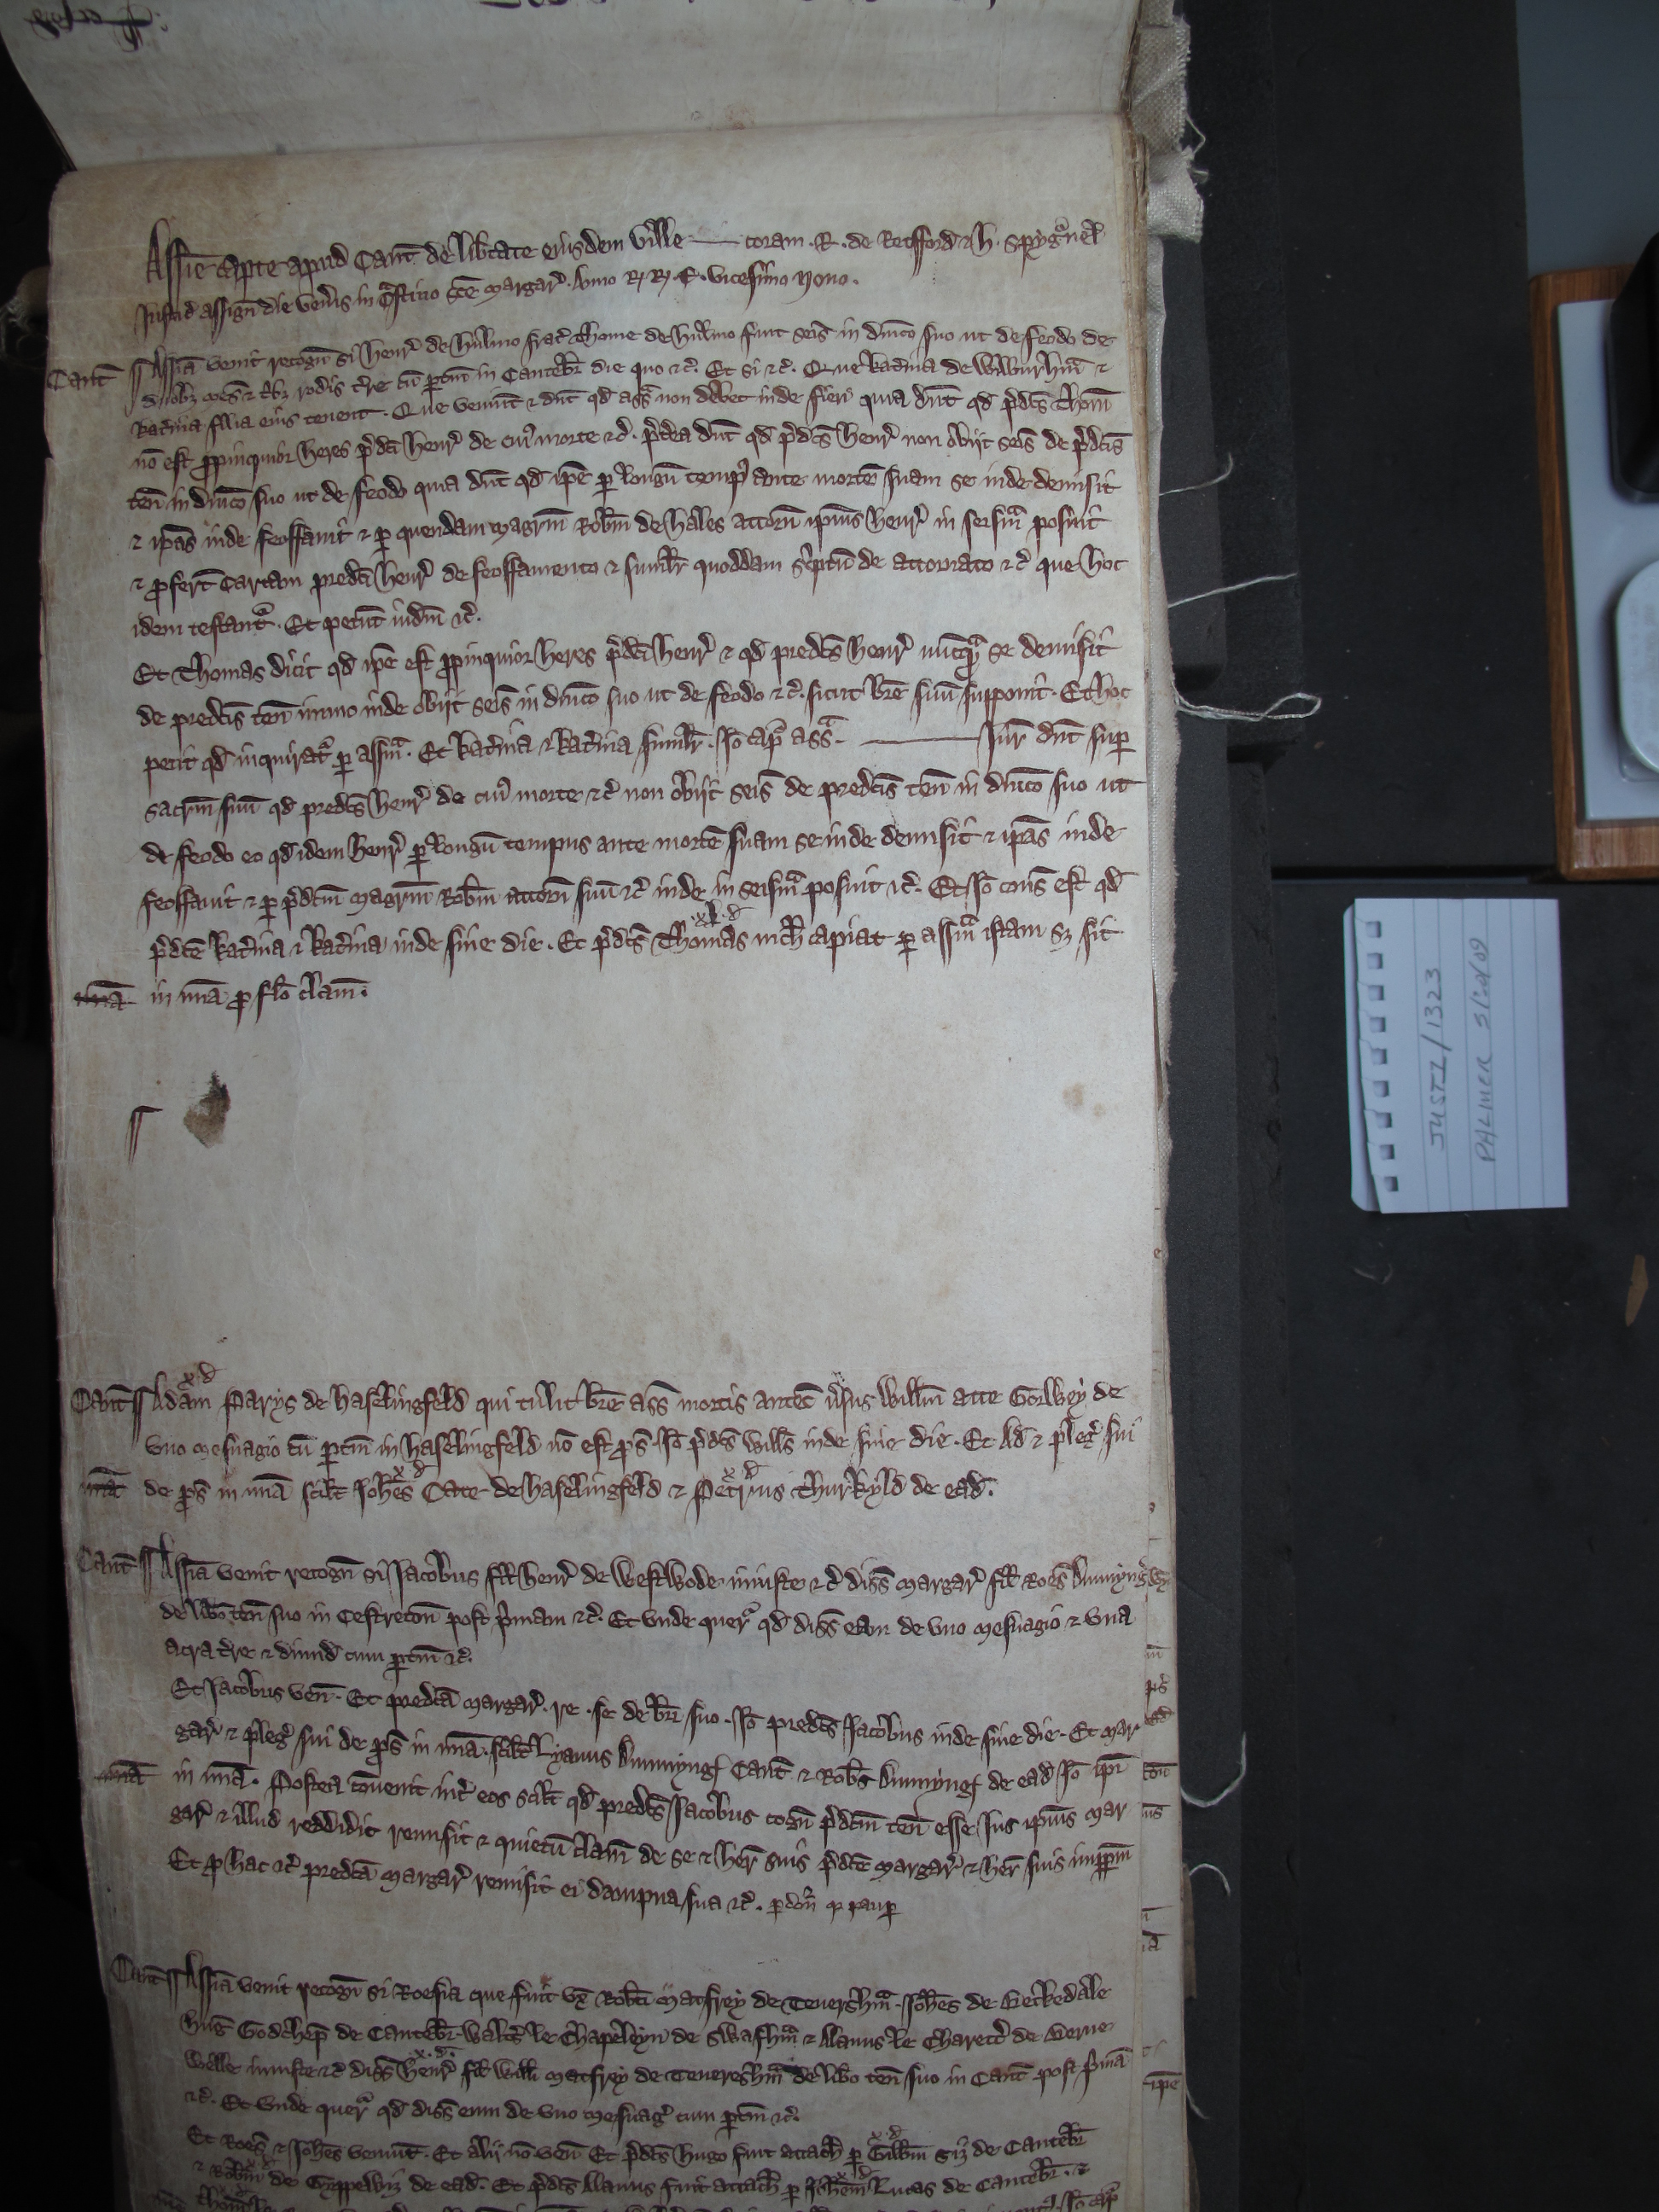 Assis̄e capte apud Cant̄ de lib̄tate eiusdem ville — coram . R . de Retfford̄ & H . Spygᵒnel
Justic̄ assign̄ die ven̄is in cᵃstino sc̄e Margar̄ . Anno R̄ R̄ . E . vicesimo nono .
Cant̄ Assīa venit recogn̄ si Henr̄ de Hulmo frat̄ Thome de Hulmo fuit seis̄ in dn̄ico suo ut de feodo de
duob3 mes̄ & t̄b3 rodis t̄re cū p̄tin̄ in Cantebr̄ die quo &c̄ . Et si &c̄ . Que Kat̄ina de Wilburhm̄ &
Kat̄ina filia eius tenent . Que veniūt & dn̄t qd̄ assᵃ non debet inde fieri quia dn̄t qd̄ p̄dc̄s Thom̄
nō est p̄pinquior heres p̄dc̄i Henr̄ de cuiꝰ morte &c̄ . p̄tea dn̄t qd̄ p̄dc̄s Henr̄ non obijt seis̄ de p̄dc̄is
ten̄ in dn̄ico suo ut de feodo quia dn̄t qd̄ ip̄e p̄ longū tempꝰ ante mortē suam se inde demisit
& ip̄as inde feoffauit & p̄ quendam Magrm̄ Rob̄m de Hales attorn̄ ip̄ius Henr̄ in seisinᵃ posuit
& p̄fert̄ Cartam predc̄i Henr̄ de feoffamento & simil̄r quoddam sc̄ptū de attornato &c̄ que hoc
idem testantᵒ . Et petūt iudm̄ &c̄ .
Et Thomas dicit qd̄ ip̄e est p̄pinquior heres p̄dc̄i Henr̄ & qd̄ predc̄s Henr̄ nūcqᵃ se demisit
de predc̄is ten̄ immo inde obijt seis̄ in dn̄ico suo ut de feodo &c̄ . sicut br̄e suū supponit . Et hoc
petit qd̄ inquiratᵒ p̄ assīam . Et Kat̄ina & Kat̄ina simil̄r . Iō cap̄ assᵃ . — Jur̄ dn̄t sup̄
sacrm̄ suū qd̄ predc̄s Henr̄ de cuiꝰ morte &c̄ non obijt seis̄ de predc̄is ten̄ in dn̄ico suo ut
de feodo eo qd̄ idem Henr̄ p̄ longū tempus ante mortē suam se inde demisit & ip̄as inde
feoffauit & p̄ p̄dc̄m Magrm̄ Rob̄m attorn̄ suū &c̄ inde in seisinᵃ posuit &c̄ . Et Iō cons̄ est qd̄
.xl.d̄
p̄dc̄e Kat̄ina & Kat̄ina inde sine die . Et p̄dc̄s Thomas nich̄ capiat p̄ assīam istam s3 sit
mīa in mīa p̄ fl̄o clam̄ .
x.d̄
Cant̄ Adam Parys de Haselingfeld qui tulit br̄e ass̄ mortis antec̄ v̄sus Will̄m atte Gorlwey de
vno mesuagio cū p̄tin̄ in Haselingfeld nō est p̄s̄ . Iō p̄dc̄s Will̄s inde sine die . Et Ad̄ & pleḡ sui
x d̄ x d̄
mīa de p̄s̄ in mīa scil̄t Joh̄es Cate de Haselingfeld & Petrus Thurkyld de ead̄ .
Cant̄ Assīa venit recogn̄ si Jacobus fil̄ Henr̄ de Westwode iniuste &c̄ diss̄ Margar̄ fil̄ Roes̄
de lib̄o ten̄ suo in Cestreton̄ post p̄mam &c̄ . Et vnde querᵒ qd̄ diss̄ eam de vno mesuagio & vna
acra t̄re & dimid̄ cum p̄tin̄ &c̄ .
Et Jacobus ven̄ . Et predc̄a Margar̄ . re . se de br̄i suo . Iō predc̄s Jacobus inde sine die . Et Mar
gar̄ & pleḡ sui de p̄s̄ in mīa . scil̄t Cant̄ & Rob̄s de ead̄ Iō ip̄i
mīa in mīa . Postea cōuenit int̄ eos scil̄t qd̄ predc̄s Jacobus cogn̄ p̄dc̄m ten̄ esse Jus ip̄ius Mar
gar̄ & illud reddidit remisit & quietū clam̄ de se & her̄ suis p̄dc̄e Margar̄ & her̄ suis imp̄pm̄
Et p̄ hac &c̄ predc̄a Margar̄ remisit ei dampna sua &c̄ . p̄don̄ qᵃ paup̄
Cant̄ Assīa venit recogn̄ si Roesia que fuit vx̄ Rob̄ti Matfrey de Teuershmᵃ . Joh̄es de Beckedale
Huḡ Godchep̄ de Cantebr̄ . Walt̄s le Chapeleyn de Swafhmᵃ & Alanus le Charett̄ de Berne
x.d̄
welle iniuste &c̄ diss̄ Henr̄ fil̄ Will̄i Matfrey de Teuereshmᵃ de lib̄o ten̄ suo in Cant̄ post p̄mā
&c̄ . Et vnde querᵒ qd̄ diss̄ eum de vno mesuaḡ cum p̄tin̄ &c̄ .
x.d̄
Et Roes̄ & Joh̄es veniūt . Et alij nō ven̄ Et p̄dc̄s Hugo fuit attach̄ p̄ Gilb̄m de Cantebr̄
& Rob̄m de Gyppewiz de ead̄ . Et p̄dc̄s Alanus fuit attach̄ p̄ Joh̄em Lucas de Cantebr̄ . &
JUST 1/1323
PALMER 21/10/09